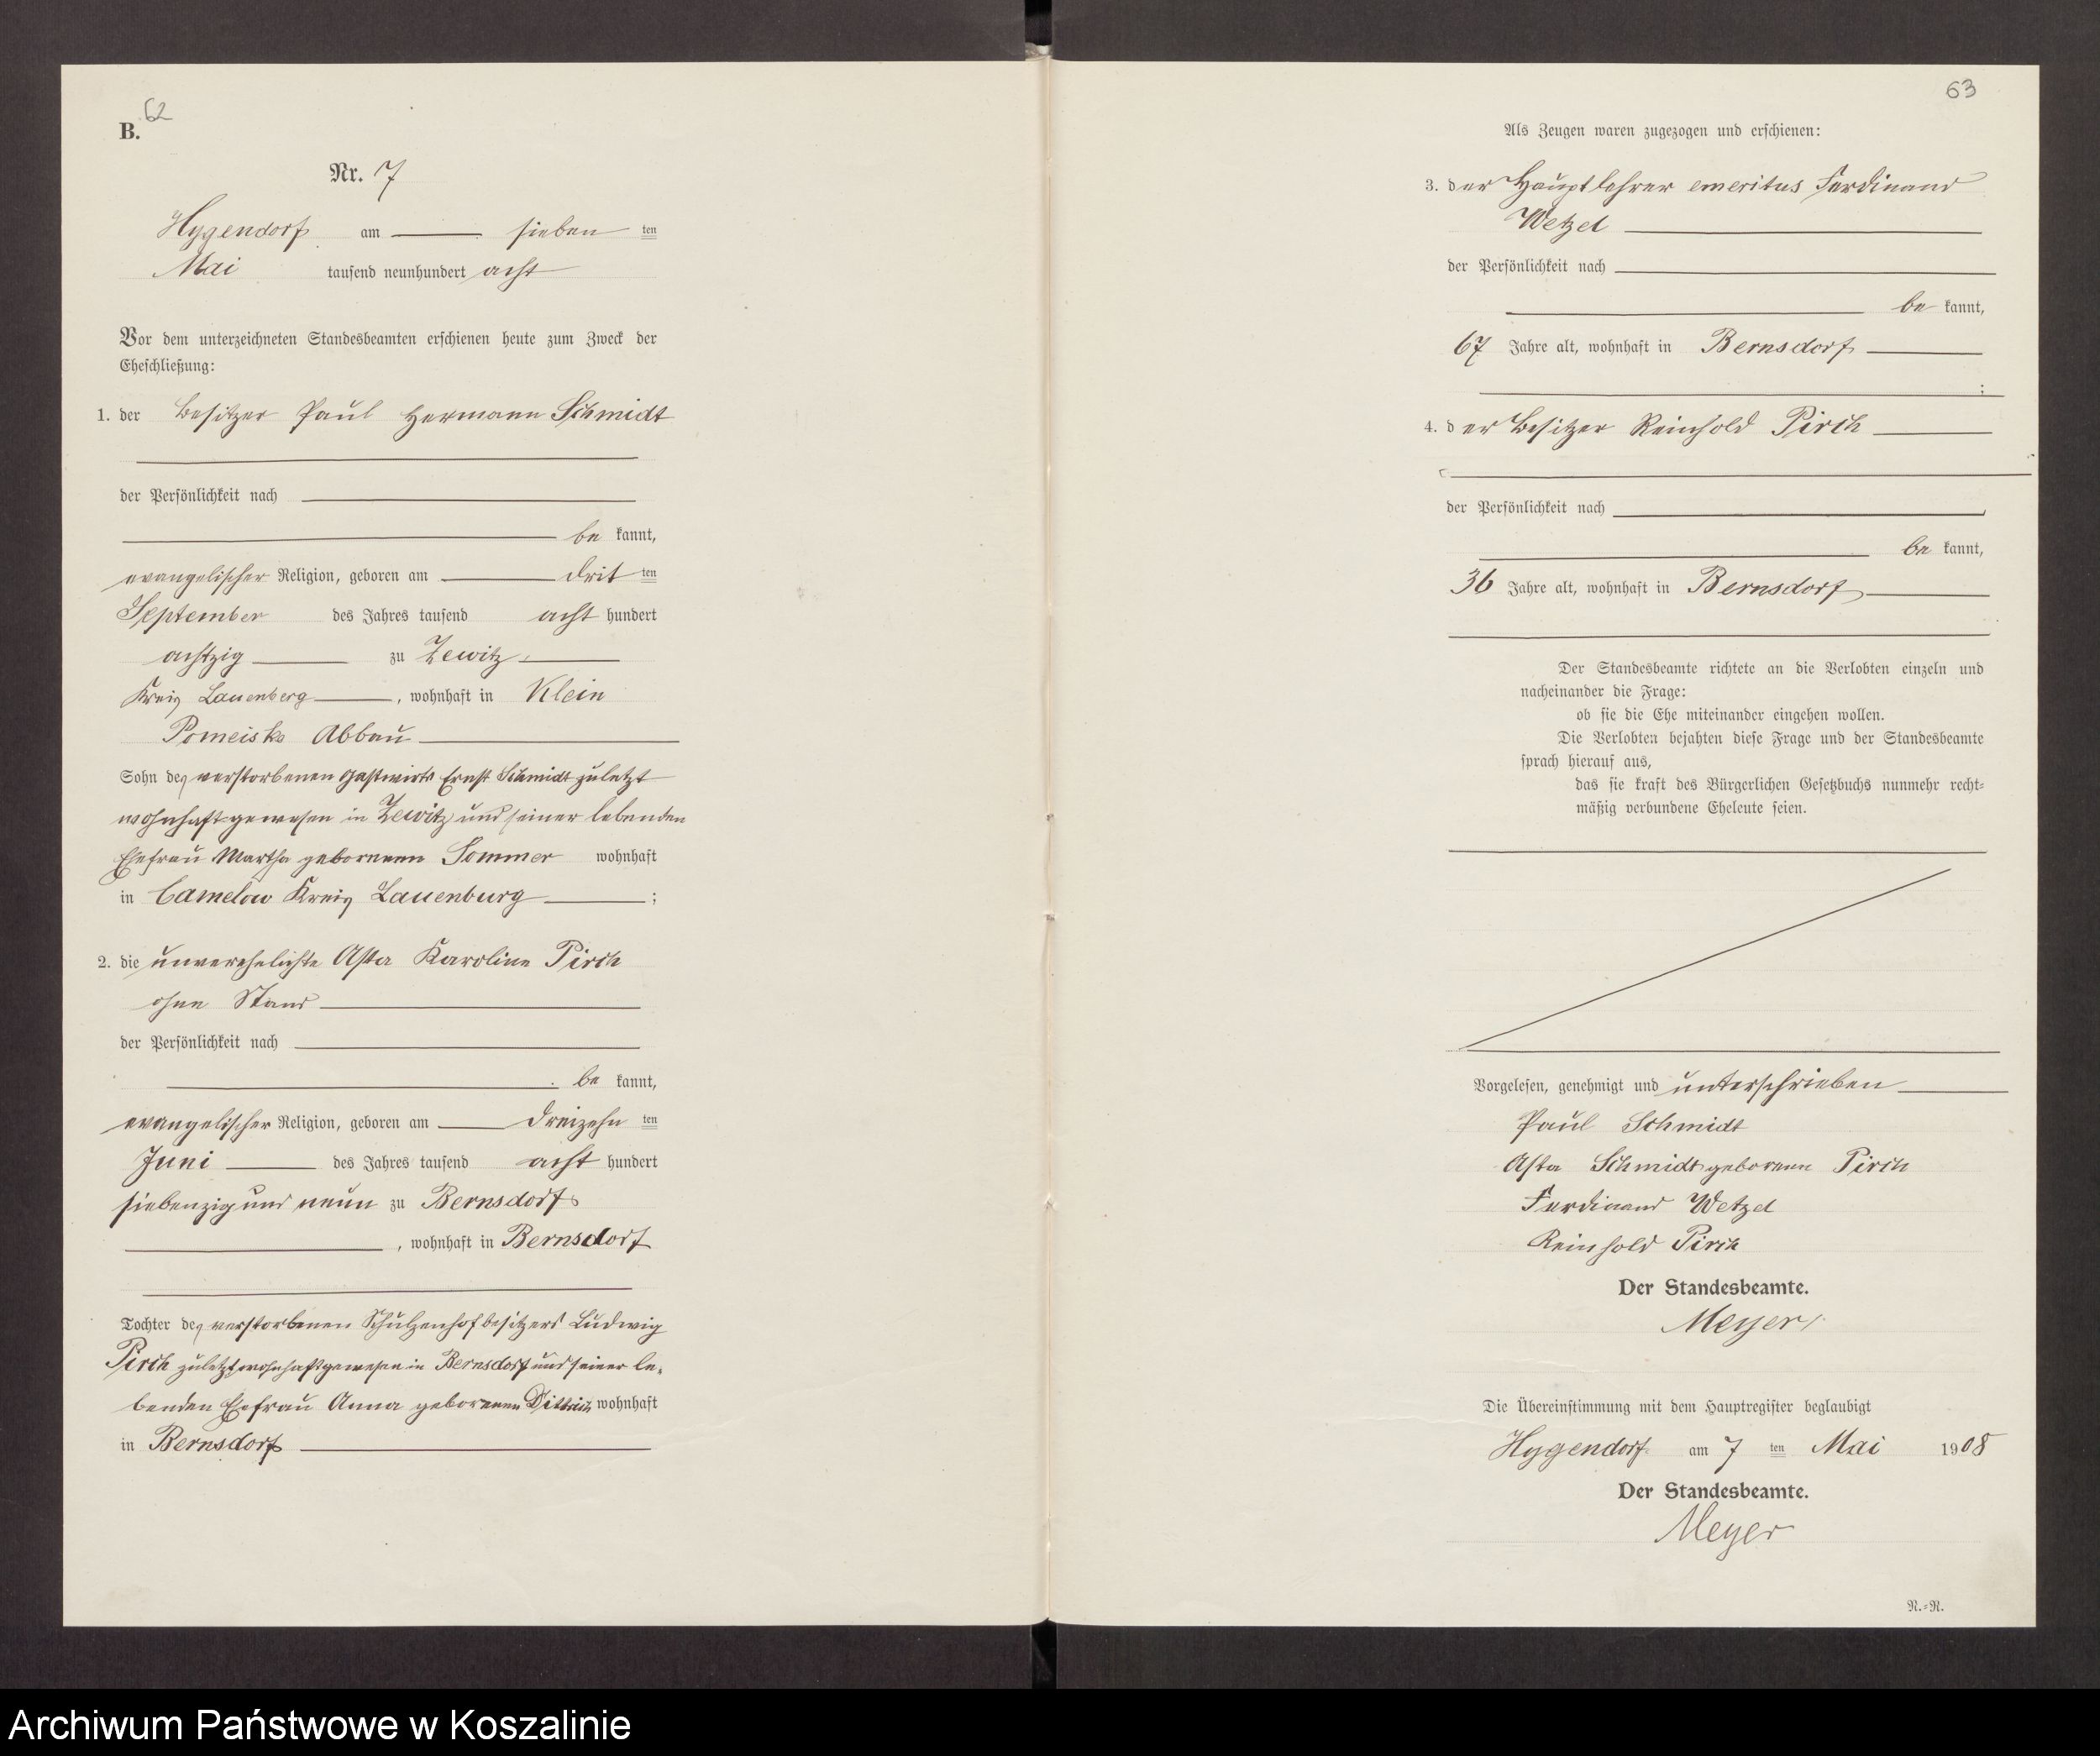 62
B.
Nr. 7
Hygendorf am sieben ten
Mai tausend neunhundert acht
Vor dem unterzeichneten Standesbeamten erschienen heute zum Zweck der
Eheschließung:
1. der Besitzer Paul Hermann Schmidt
der Persönlichkeit nach
be kannt,
evangelischer Religion, geboren am drit ten
September des Jahres tausend acht hundert
achtzig zu Zewitz
Kreis Lauenberg, wohnhaft in Klein
Pomeiske Abbau
Sohn des verstorbenen Gastwirts Ernst Schmidt zuletzt
wohnhaft gewesen in Zewitz und seiner lebenden
Ehefrau Martha geborenen Sommer wohnhaft
in Camelow Kreis Lauenburg ;
2. die unverehelichte Asta Karoline Pirch
ohne Stand
der Persönlichkeit nach
be kannt,
evangelischer Religion, geboren am dreizehn ten
Juni des Jahres tausend acht hundert
siebenzig und neun zu Bernsdorf
, wohnhaft in Bernsdorf
Tochter des verstorbenen Schulzenhofbesitzers Ludwig
Pirch zuletzt wohnhaft gewesen in Bernsdorf und seiner le-
benden Ehefrau Anna geborenen Dittrich wohnhaft
in Bernsdorf
63
Als Zeugen waren zugezogen und erschienen:
3. der Hauptlehrer emeritus Ferdinand
Wetzel
der Persönlichkeit nach
be kannt,
67 Jahre alt, wohnhaft in Bernsdorf
;
4. der Besitzer Reinhold Pirch
der Persönlichkeit nach
be kannt,
36 Jahre alt, wohnhaft in Bernsdorf
Der Standesbeamte richtete an die Verlobten einzeln und
nacheinander die Frage:
ob sie die Ehe miteinander eingehen wollen.
Die Verlobten bejahten diese Frage und der Standesbeamte
sprach hierauf aus,
das sie kraft des Bürgerlichen Gesetzbuchs nunmehr recht-
mäßig verbundene Eheleute seien.
Vorgelesen, genehmigt und unterschrieben
Paul Schmidt
Asta Schmidt geborene Pirch
Ferdinand Wetzel
Reinhold Pirch
Der Standesbeamte.
Meyer
Die Übereinstimmung mit dem Hauptregister beglaubigt
Hygendorf am 7 ten Mai 1908
Der Standesbeamte.
Meyer
R.-R.
Archiwum Państwowe w Koszalinie